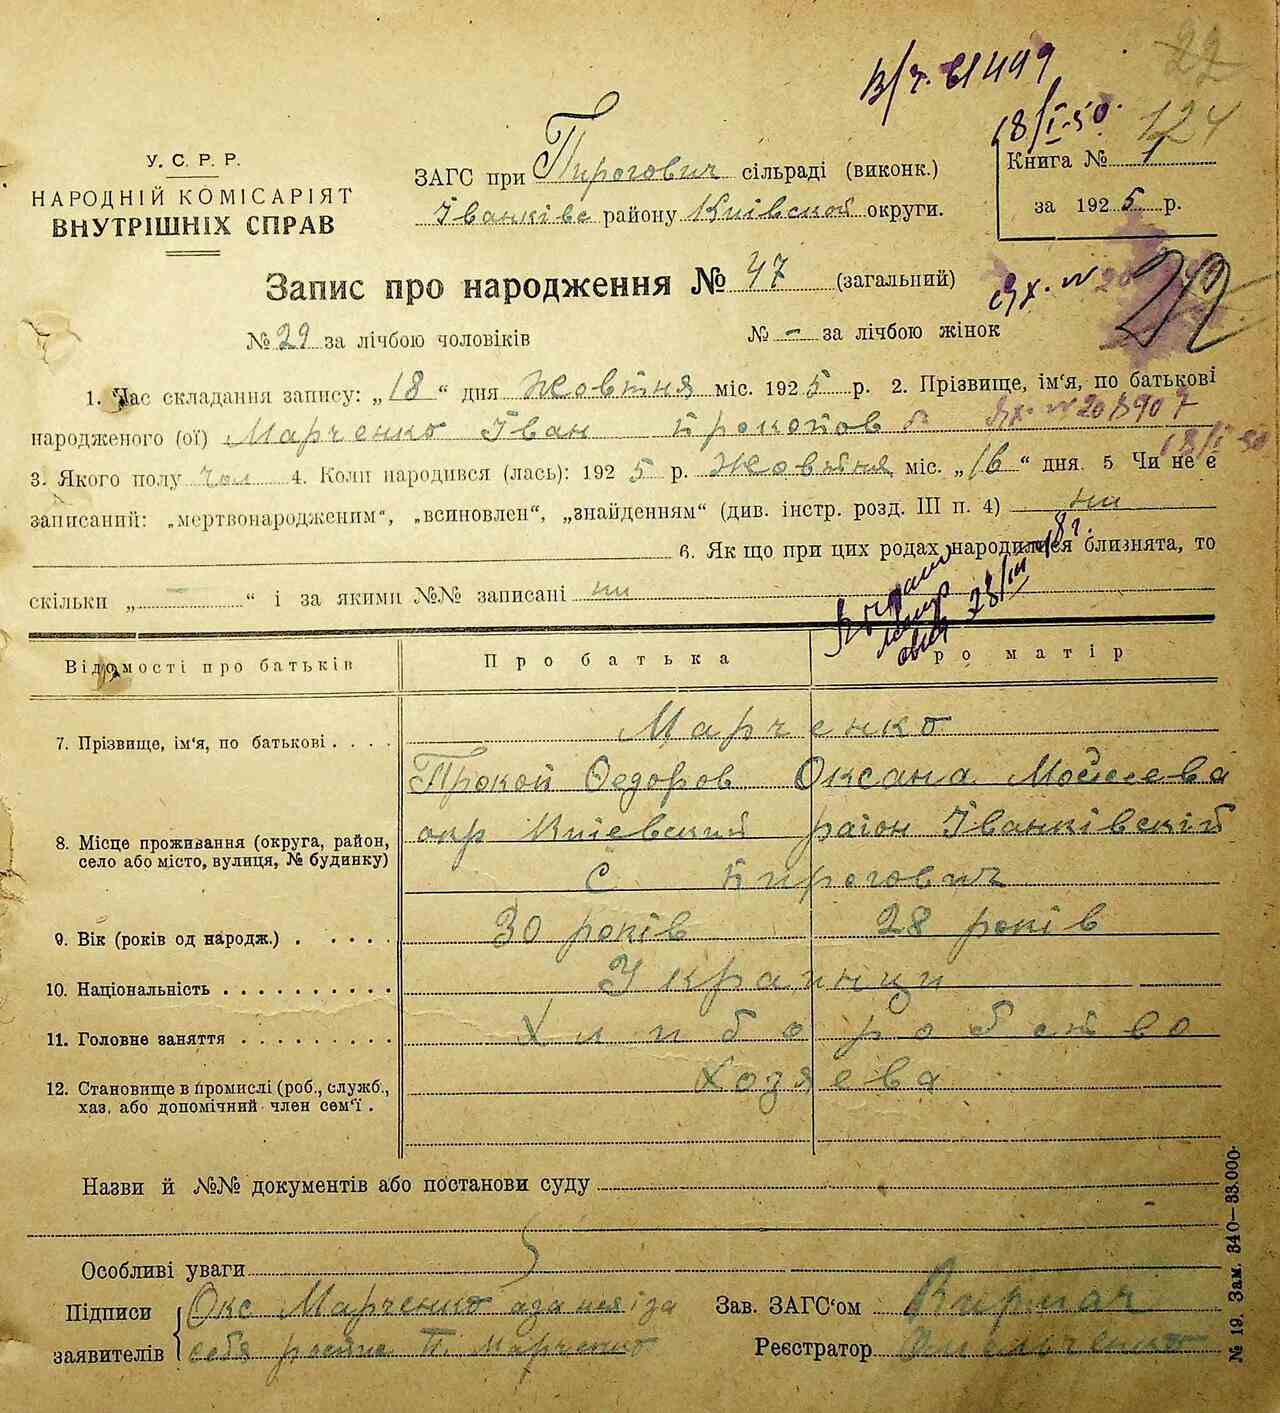 22
В/ч. 61499
18/I-50.
124
У. С. Р. Р.
НАРОДНІЙ КОМІСАРІЯТ
ВНУТРІШНІХ СПРАВ
ЗАГС при Пирогович сільраді (виконк.)
Іванківс району Київской округи.
Книга № 1
за 1925 р.
Запис про народження № 47 (загальний)
Вх. №
№ 29 за лічбою чоловіків № - за лічбою жінок
1. Час складання запису: „18“ дня Жовтня міс. 1925 р. 2. Прізвище, ім‘я, по батькові
народженого (ої) Марченко Іван Прокопов Вх. № 201907
18/I 50
3. Якого полу чол 4. Коли народився (лась): 1925 р. Жовтня міс. „16“ дня. 5 Чи не є
записаний: „мертвонародженим“, „всиновлен“, „знайденням“ (див. інстр. розд. III п. 4) ни
6. Як що при цих родах народилися близнята, то
скільки „ - “ і за якими №№ записані ни
28/III
Відомості про батьків Про батька Про матір
7. Прізвище, ім‘я, по батькові . . . . Марченко
Прокоп Федоров Оксана Мойсеева
8. Місце проживання (округа, район,
село або місто, вулиця, № будинку)
окр Киевский район Іванківскій
с Пирогович
9. Вік (років од народж.) . . . . . 30 років 28 років
10. Національність . . . . . . . . . . Украинци
11. Головне заняття . . . . . . . . . Хлиборобство
12. Становище в промислі (роб., служб.,
хаз. або допомічний член сем‘ї .
Хозяева
Назви й №№ документів або постанови суду
Особливі уваги
Підписи
заявителів
Окс Марченко а за нея і за
себя роспис П. Марченко
Зав. ЗАГС‘ом
Реєстратор
№ 19. Зам. 340—33.000.